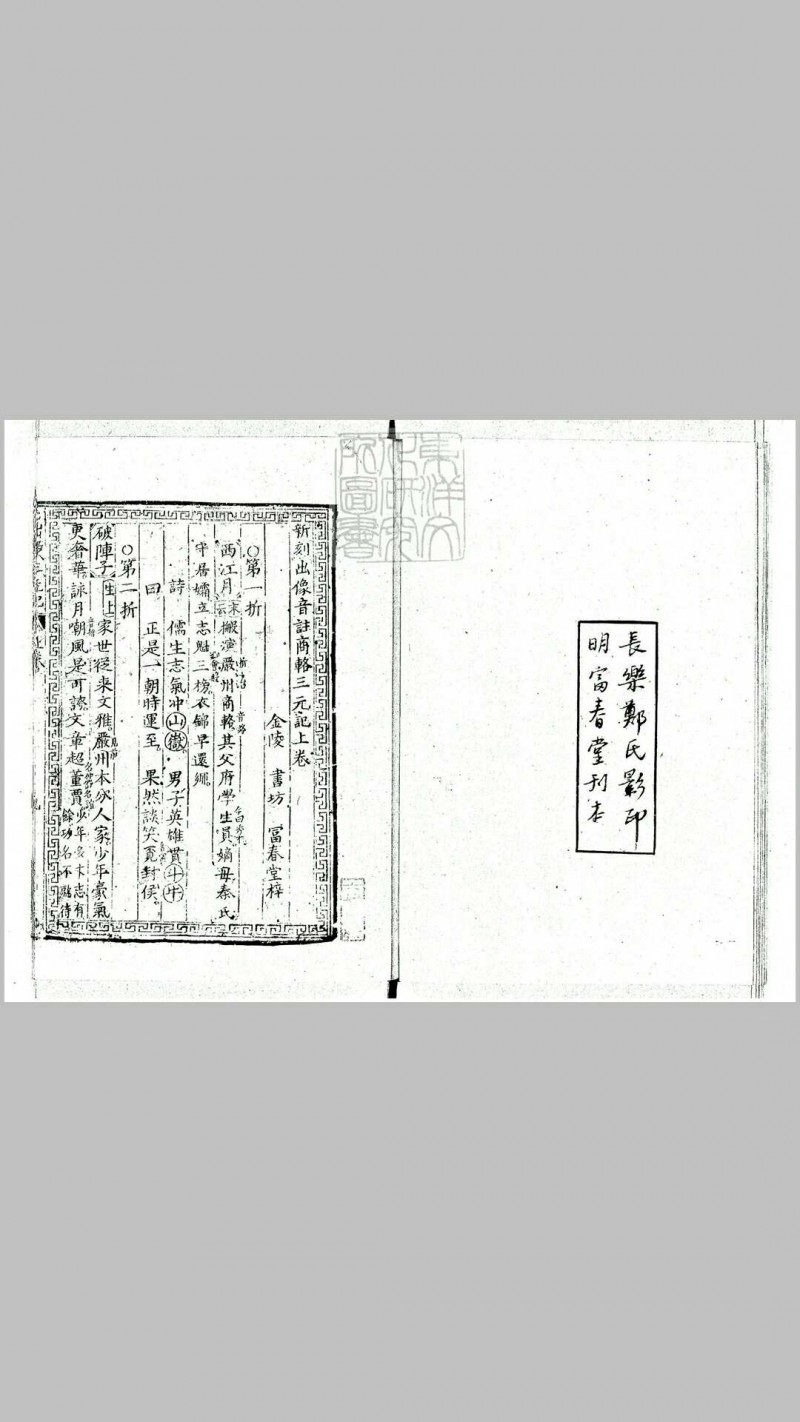 長樂鄭氏影印
明富春堂刊本
東洋文
化研究
所圖書
新刻出像音註商輅三元記上卷
金陵 書坊 富春堂梓
○第一折
西江月 末云 搬演嚴州商輅其父府學生員嫡母秦氏
守居孀立志魁三榜衣錦早還鄉
詩 儒生志氣冲山嶽 男子英雄貫斗牛
曰 正是一朝時運至 果然談笑覓封侯
○第二折
破陣子 生上 家世從來文雅嚴州本分人家少年豪氣
更奢華詠月嘲風是可誇文章超董賈少年多大志有
餘功名不難待